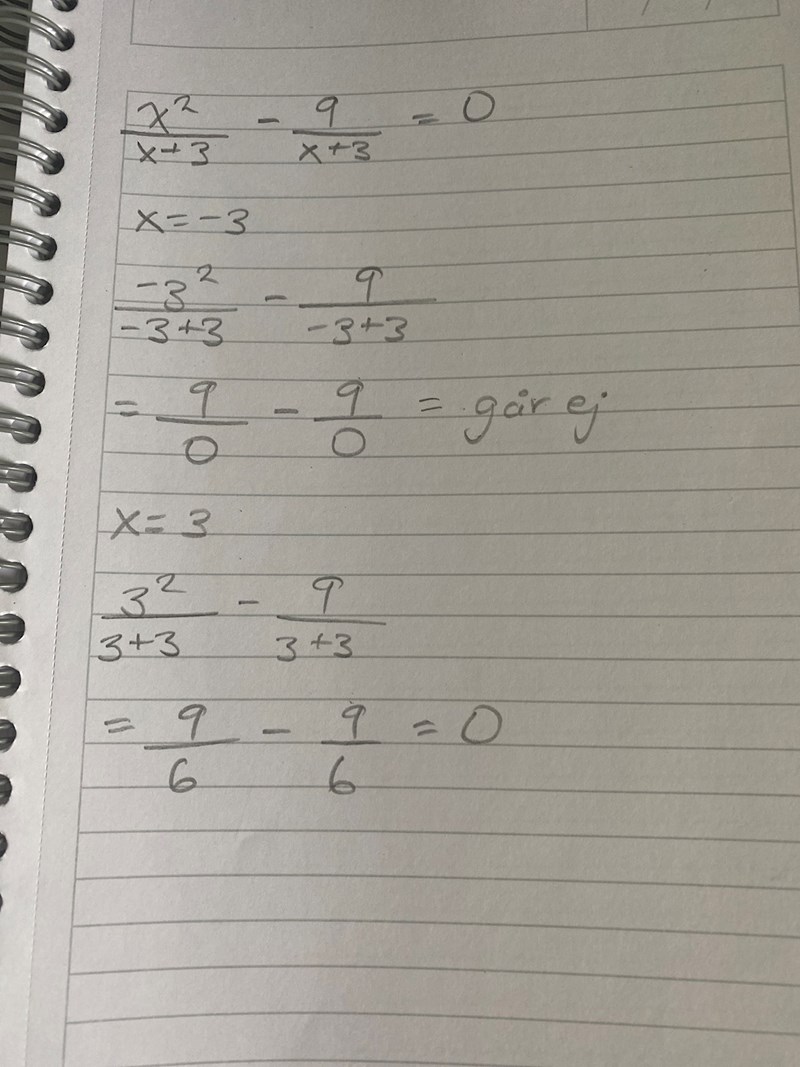 x²/(x+3) - 9/(x+3) = 0
x = -3
-3²/(-3+3) - 9/(-3+3)
= 9/0 - 9/0 = går ej
x = 3
3²/(3+3) - 9/(3+3)
= 9/6 - 9/6 = 0